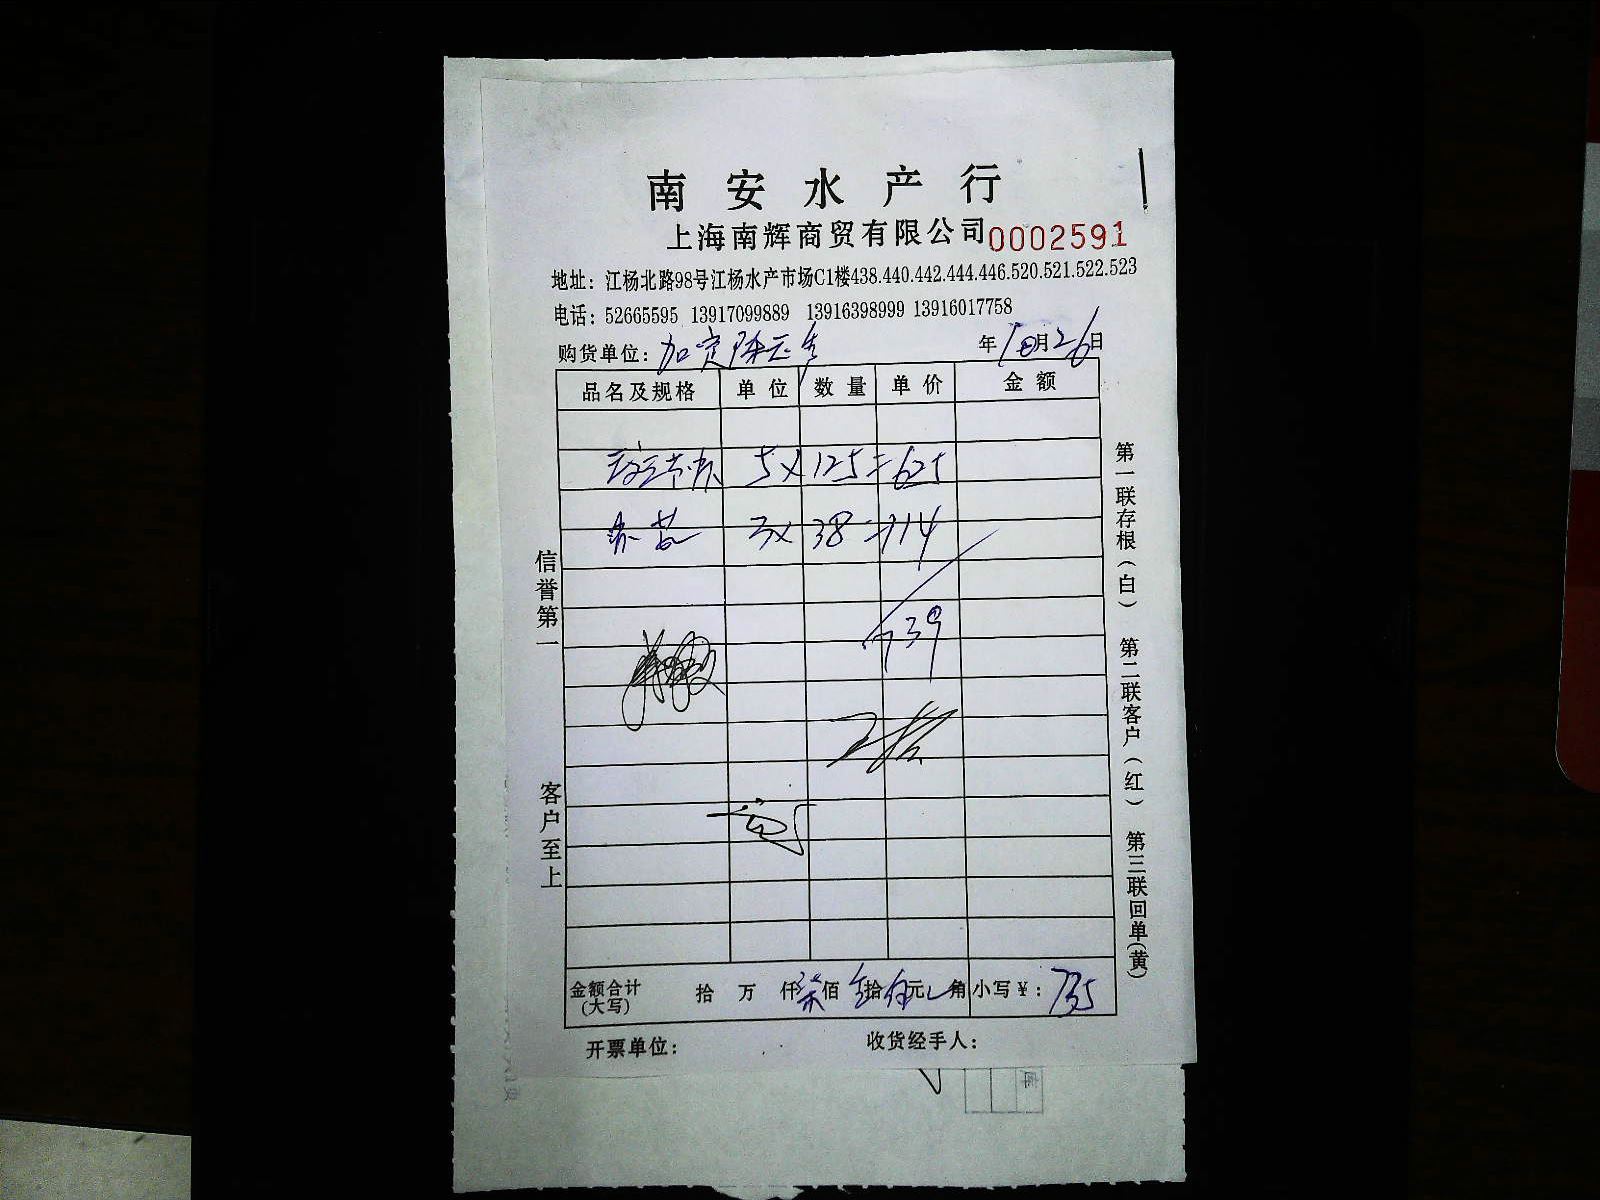 南安水产行
上海南辉商贸有限公司 0002591
地址：江杨北路98号江杨水产市场C1楼438.440.442.444.446.520.521.522.523
电话：52665595 13917099889 13916398999 13916017758
购货单位：加定陈 年10月26日
品名及规格 单位 数量 单价 金额
5×125=625
3×38=114
739
金额合计(大写) 拾 万 仟柒佰 拾伍元 角 小写￥：735
开票单位： 收货经手人：
信誉第一 客户至上
第一联存根（白） 第二联客户（红） 第三联回单（黄）
库